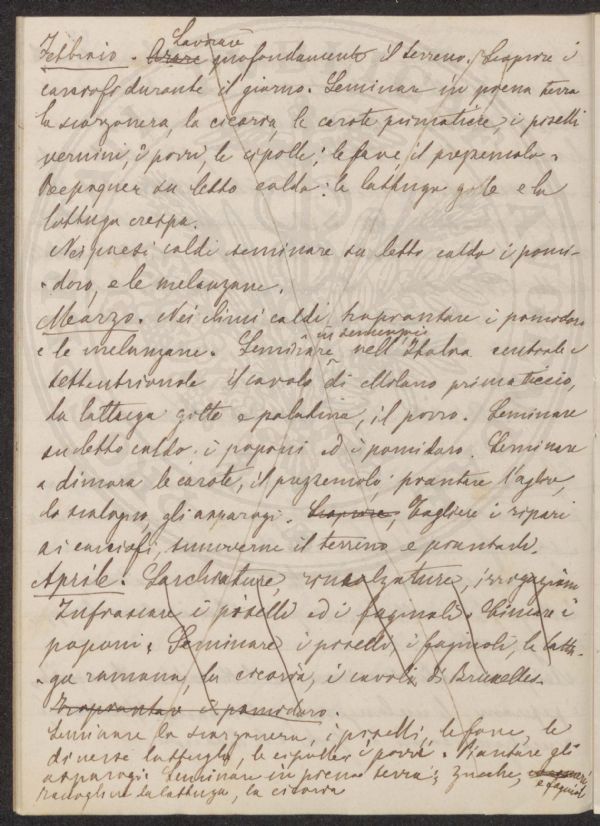 Lavorare
Febbraio. Arare profondamente il terreno. Scoprire i
carciofi durante il giorno. Seminare in piena terra
la scorzonera, la cicoria, le carote primaticce, i piselli
vernini, i porri, le cipolle, le fave, il prezzemolo.
Seppure su letto caldo: la lattuga gotte e la
lattuga crespa.
Nei paesi caldi seminare su letto caldo i pomi-
doro, e le melanzane.
Marzo. Nei climi caldi trapiantare i pomodoro
in semenzaio
e le melanzane. Seminare nell'Italia centrale e
settentrionale il cavolo di Milano primaticcio,
la lattuga gotte e paladina, il porro. Seminare
su letto caldo i poponi ed i pomidoro. Seminare
a dimora le carote, il prezzemolo piantare l'aglio,
lo scalogno, gli asparagi. Scoprire, Togliere i ripari
ai carciofi, smuoverne il terreno e piantarli.
Aprile. Sarchiature, rincalzature, irrigazioni
Infrascare i piselli ed i fagiuoli. Cimare i
poponi. Seminare i piselli, i fagiuoli, la lattu-
-ga romana, la cicoria, i cavoli di Bruxelles.
Trapiantare il pomidoro.
Seminare la scorzonera, i piselli, le fave, le
diverse lattughe, le cipolle, i porri. Piantare gli
asparagi. Seminare in piena terra; zucche,
e fagiuoli
raccogliere la lattuga, la cicoria